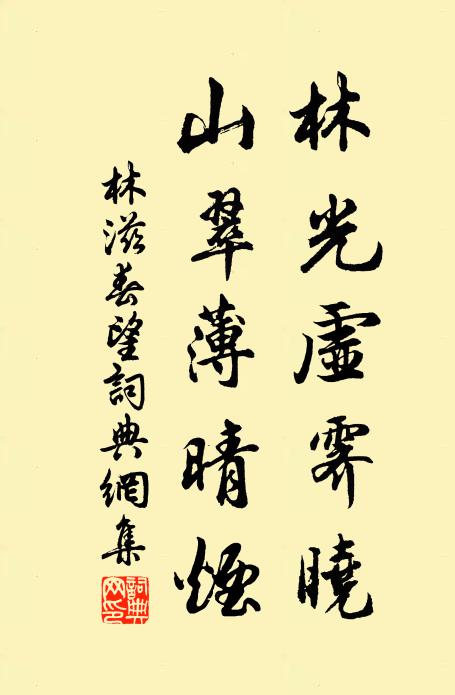 林光虛霽曉
山翠薄晴煙
林滋春望詞典網集